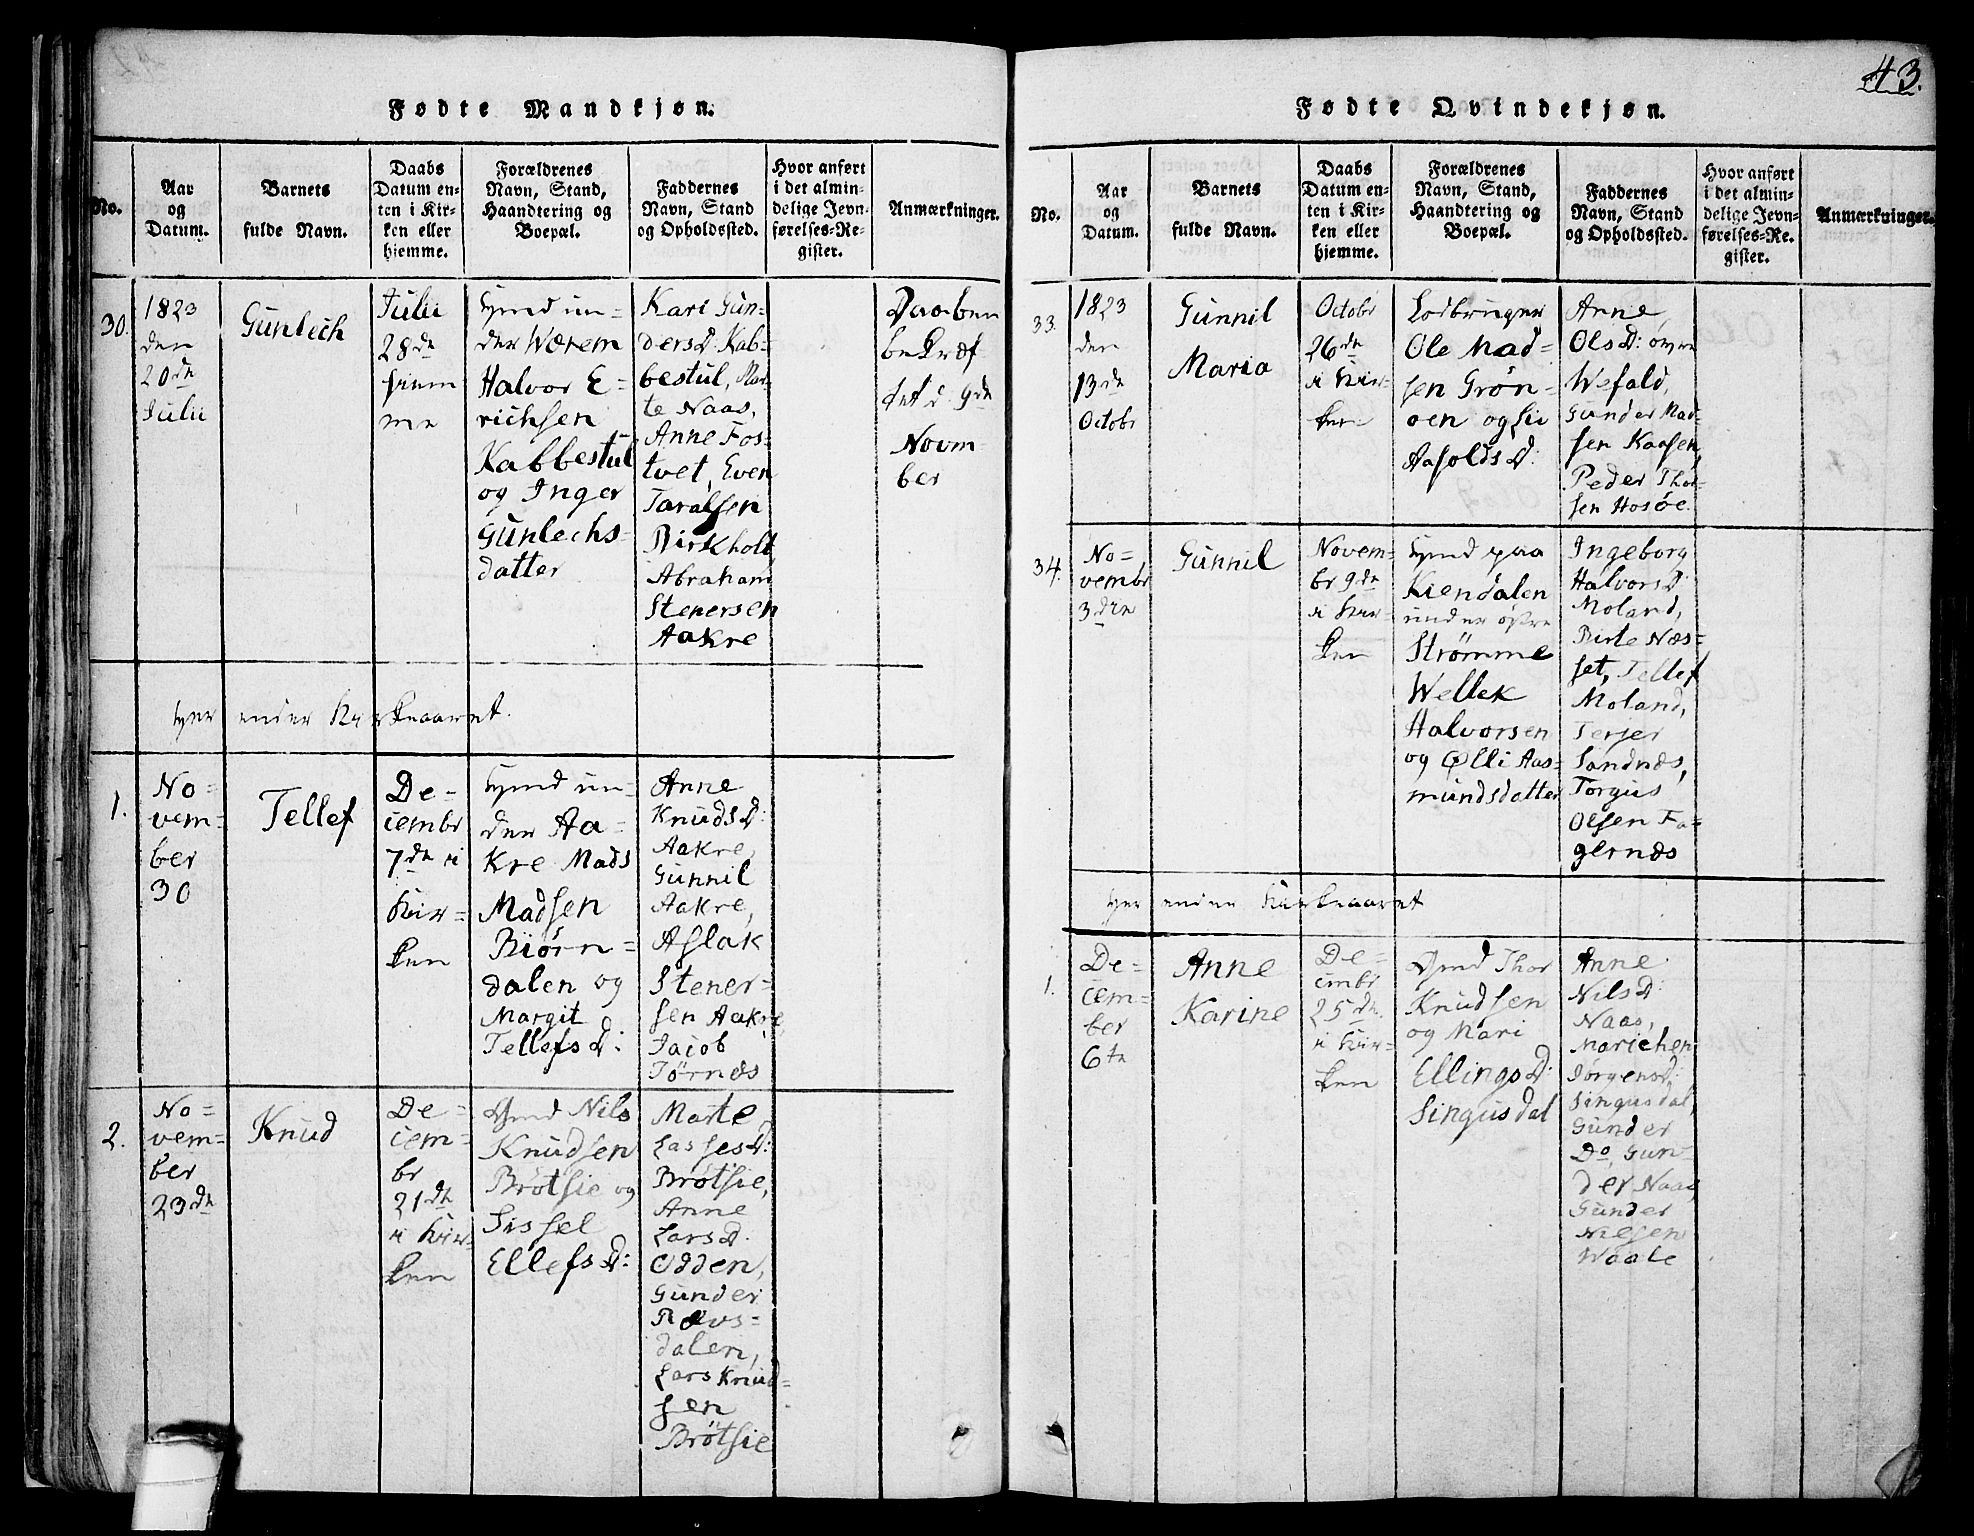 Fødte Mandkjøn.
No.
Aar
og
Datum.
Barnets
fulde Navn.
Daabs
Datum en-
ten i Kir-
ken eller
hjemme.
Forældrenes
Navn, Stand,
Haandtering og
Boepæl.
Faddernes
Navn, Stand
og Opholdssted.
Hvor anført
i det almin-
delige Jevn-
førelses-Re-
gister.
Anmærkninger.
30.
1823
den
20de
Julii
Gunlech
Julii
28de
hiem
me
un-
der Wærem
Halvor E-
richsen
Kabbestul
og Inger
Gunlechs-
datter
Kari Gun-
dersD. Kab-
bestul, Mar-
te Naas,
Anne Fos-
tvet, Even
Taralsen
Birkholt
Abraham
Stenersen
Aakre
Daaben
bekræf-
tet d. 9de
Novm-
ber
her ender Kirkeaaret.
1.
No-
vem-
ber
30
Tellef
De-
cembr
7de i
Kir-
ken
un-
der Aa-
kre Mads
Madsen
Biørn-
dalen og
Margit
Tellefs D:
Anne
KnudsD:
Aakre,
Gunnil
Aakre,
Aslak
Stener-
sen Aakre,
Jacob
Tørnæs
2.
No-
vem-
ber
23de
Knud
De-
cem-
br
21de
i Kir-
ken
Gmd Nils
Knudsen
Brötsie og
Sissel
EllefsD:
Marte
LassesD:
Brötsie,
Anne
LarsD.
Odden,
Gunder
Rævs-
dalen,
Lars Knud-
sen
Brötsie
43.
Fødte Qvindekjøn.
No.
Aar
og
Datum.
Barnets
fulde Navn.
Daabs
Datum en-
ten i Kir-
ken eller
hjemme.
Forældrenes
Navn, Stand,
Haandtering og
Boepæl.
Faddernes
Navn, Stand
og Opholdssted.
Hvor anført
i det almin-
delige Jevn-
førelses-Re-
gister.
Anmærkninger.
33.
1823
den
13de
Octobr
Gunnil
Maria
Octobr
26de
i Kir-
ken
Lodbruger
Ole Mad-
sen Grön-
oen og
AasoldsD:
Anne
OlsD:
Wefald,
Gunder Mad-
sen Kaasen,
Peder Thor-
sen Hosöe.
34.
No-
vembr
3die
Gunnil
Novem-
br 9de
i Kir-
ken
paa
Kiendalen
under östre
Strömme
Wellek
Halvorsen
og Ølli Aas-
mundsdatter
Ingeborg
HalvorsD:
Moland,
Birte Næs-
set, Tellef
Moland,
Terjer
Sandnæs,
Torgus
Olsen Fa-
gernæs
her ender Kirkeaaret
1.
De-
cem-
ber
6te
Anne
Karine
De-
cmbr
25de
i Kir-
ken
Gmd Thor
Knudsen
og Mari
EllingsD:
Singusdal
Anne
NilsD:
Naas,
Marichen
JörgensD:
Singusdal,
Gunder
Do, Gun-
der Naas,
Gunder
Nielsen
Waale